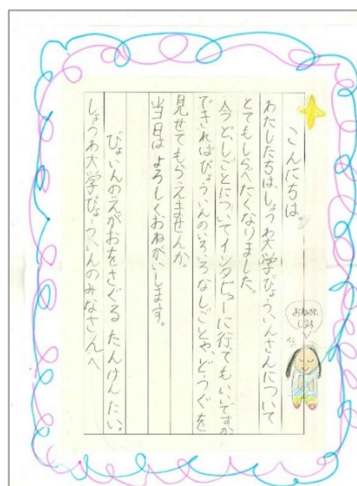 こんにちは。
わたしたちは、しょうわ大学びょういんさんについて
とてもしらべたくなりました。
今ど、しごとについてインタビューに行てもいいですか
できればびょういんのいろいろなしごとや、どうぐを
見せてもらえませんか。
当日は よろしくおねがいします。
びょいんのえがおをさぐる たんけんたい。
しょうわ大学びょういんのみなさんへ
おねがい
します